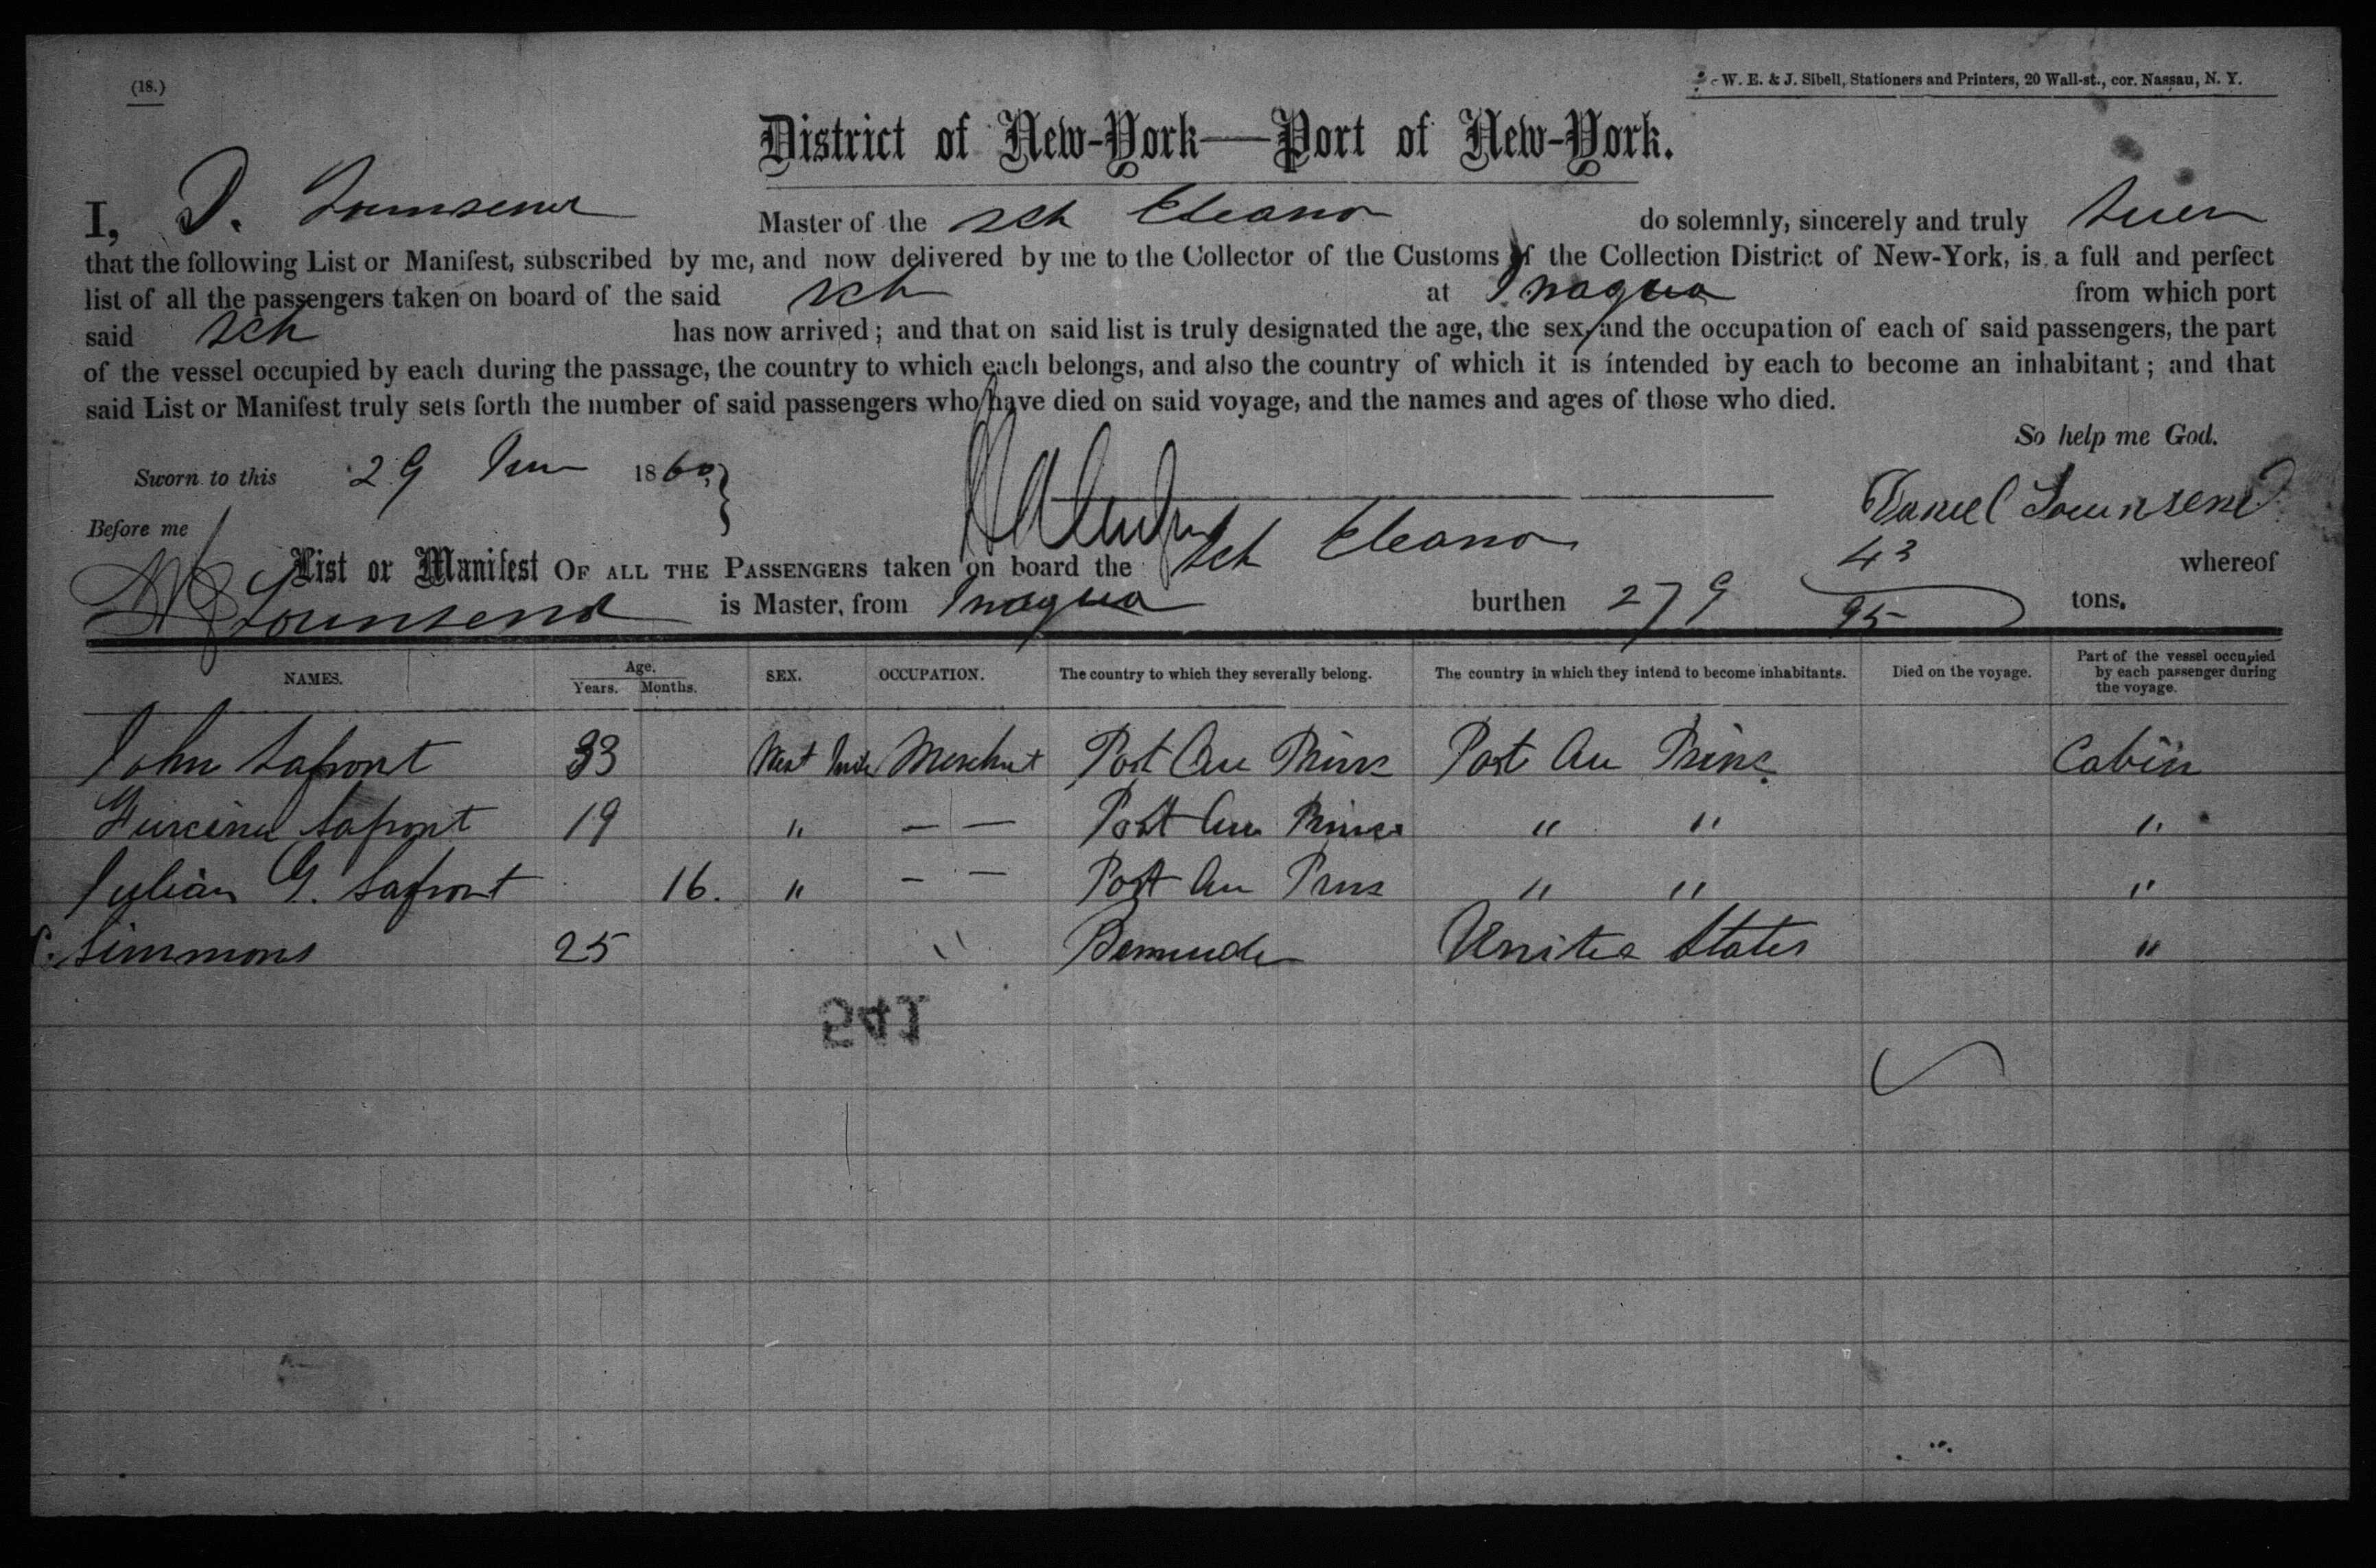 (18.)
W. E. & J. Sibell, Stationers and Printers, 20 Wall-st., cor. Nassau, N. Y.
District of New-York—Port of New-York.
I, D. Townsend Master of the Sch Eleanor do solemnly, sincerely and truly swear
that the following List or Manifest, subscribed by me, and now delivered by me to the Collector of the Customs of the Collection District of New-York, is a full and perfect
list of all the passengers taken on board of the said Sch at Inagua from which port
said Sch has now arrived; and that on said list is truly designated the age, the sex, and the occupation of each of said passengers, the part
of the vessel occupied by each during the passage, the country to which each belongs, and also the country of which it is intended by each to become an inhabitant; and that
said List or Manifest truly sets forth the number of said passengers who have died on said voyage, and the names and ages of those who died.
So help me God.
Sworn to this 29 1860
Daniel Townsend
Before me
List or Manifest OF ALL THE PASSENGERS taken on board the Sch Eleanor whereof
Townsend is Master, from Inagua burthen 279 43/95 tons.
NAMES. Age. Years. Months. SEX. OCCUPATION. The country to which they severally belong. The country in which they intend to become inhabitants. Died on the voyage. Part of the vessel occupied by each passenger during the voyage.
John Lafront 33 Merchant Port Au Prince Port Au Prince Cabin
Lafront 19 " — — Port Au Prince " " "
Julian G. Lafront 16. " — — Port Au Prins " " "
Simmons 25 " Bermuda United States "
541